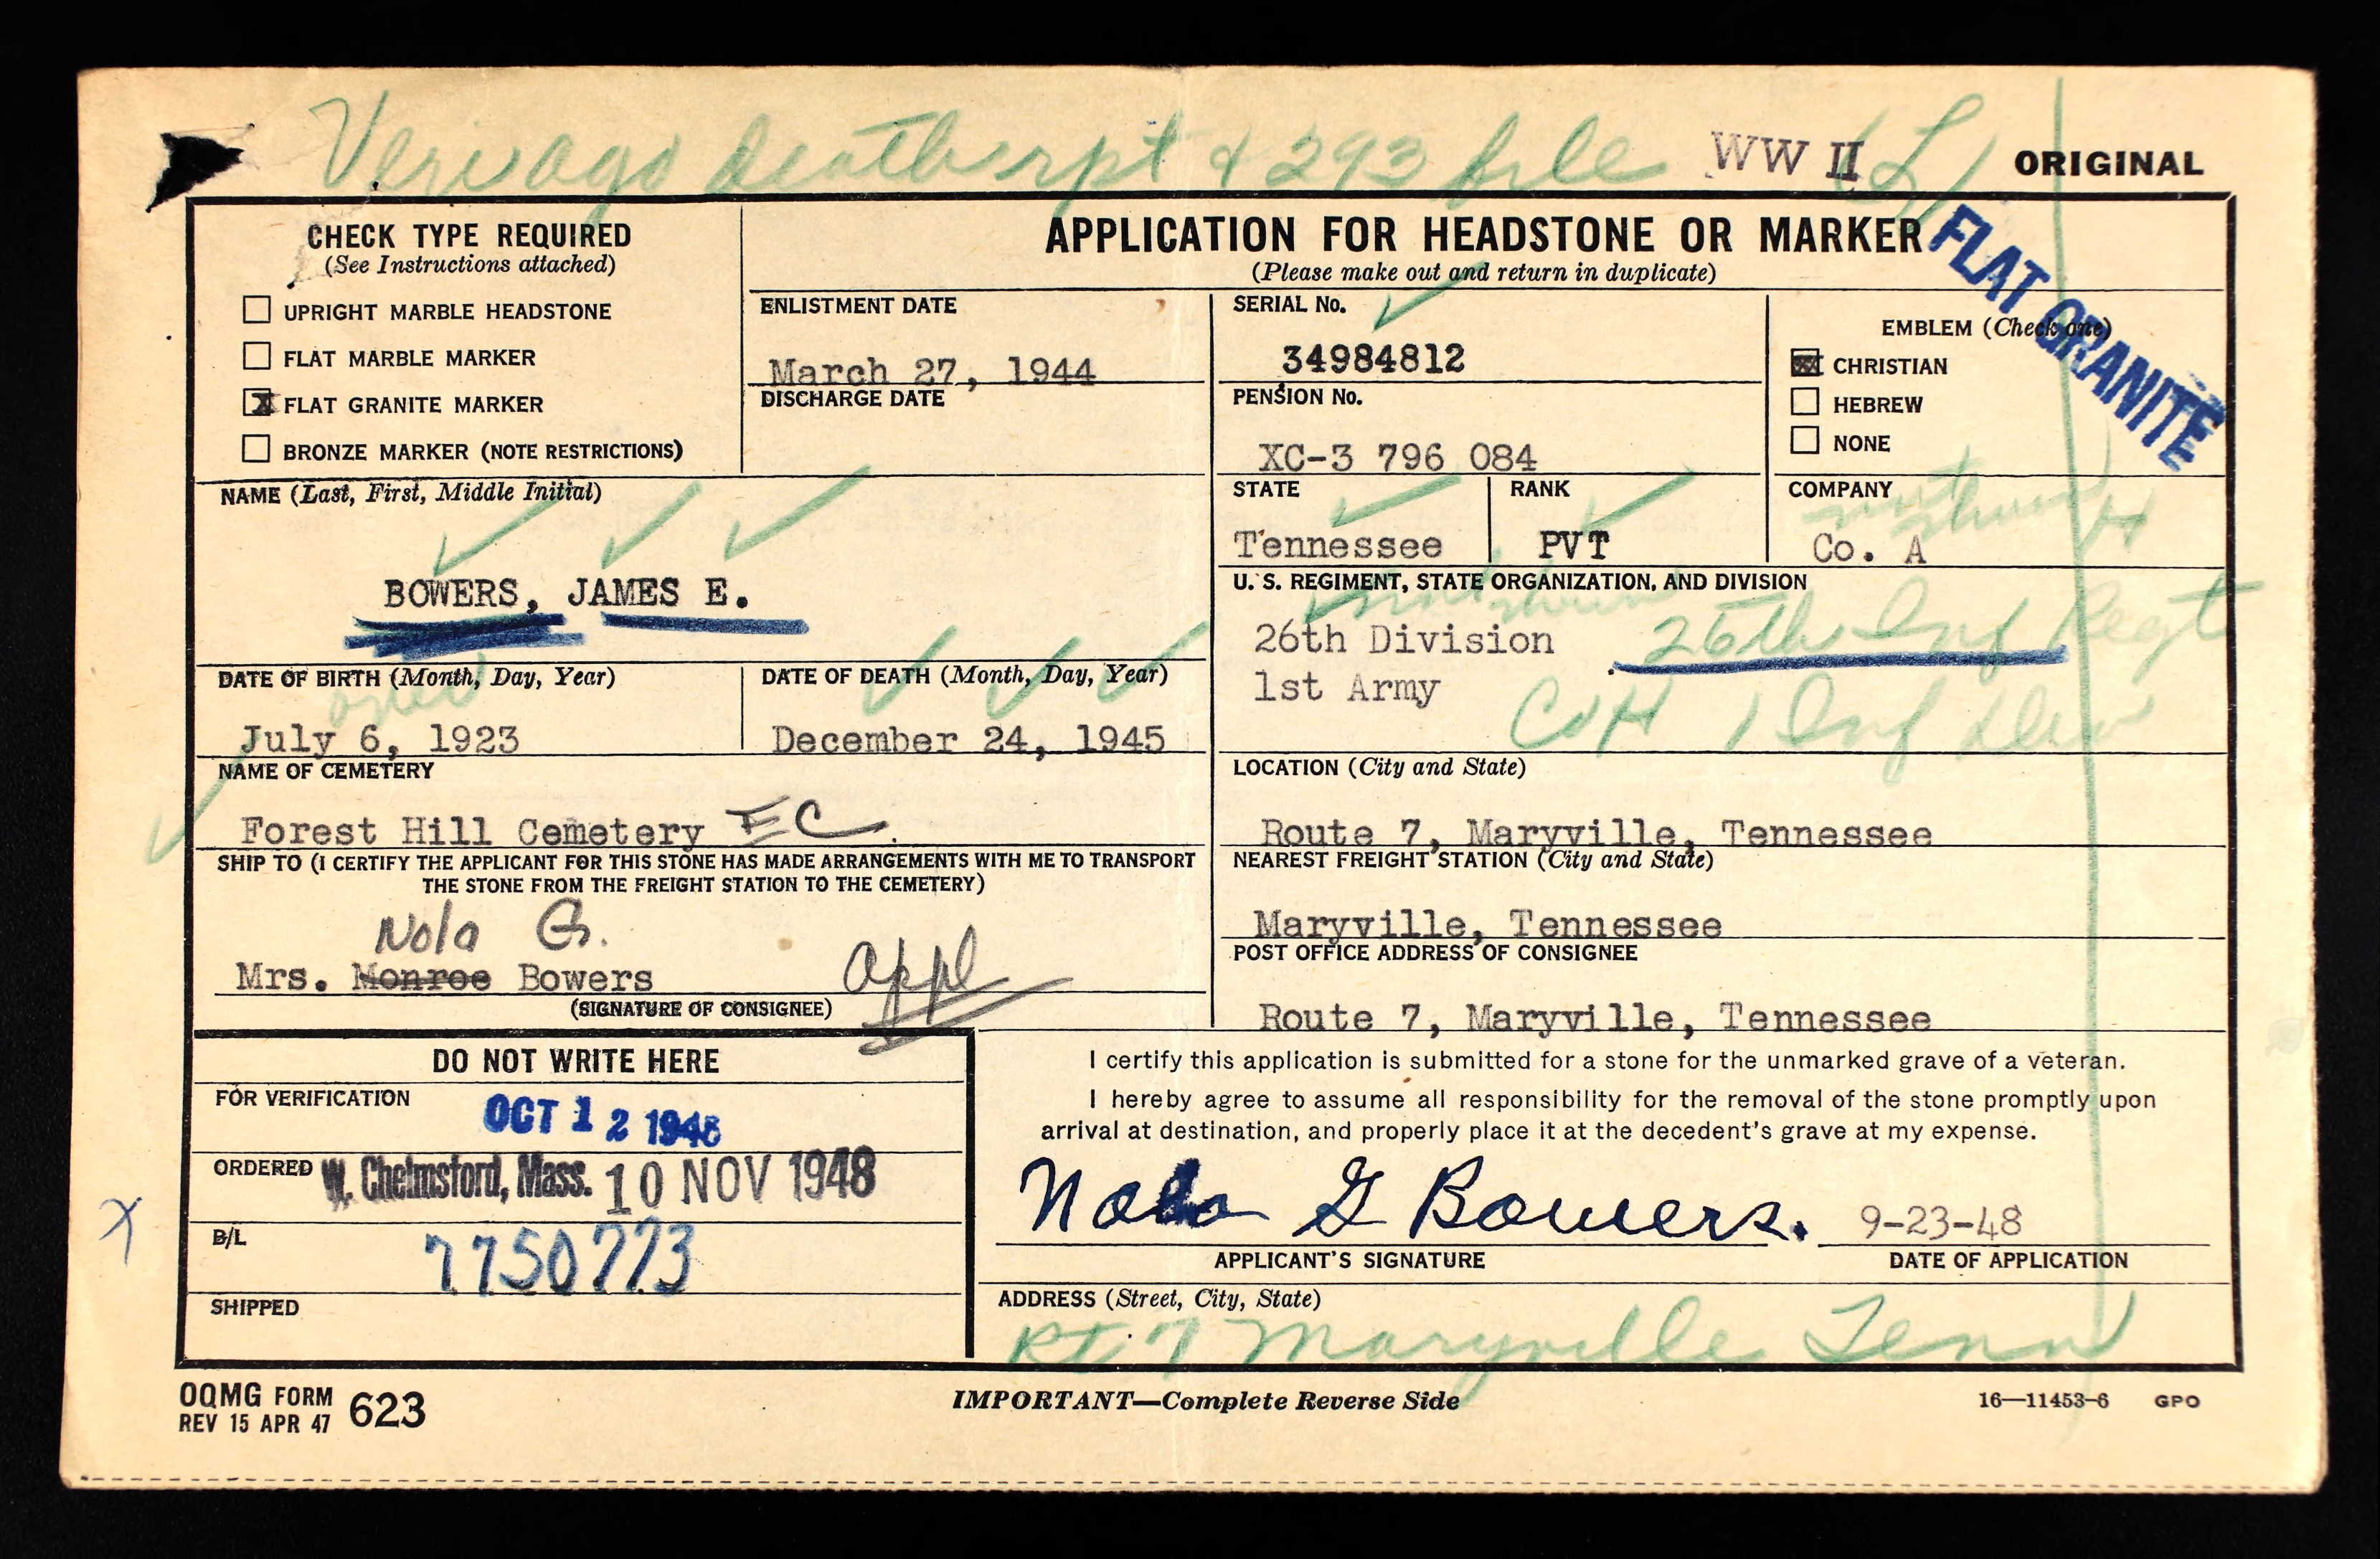 Veri ago death rpt & 293 file WW II (L) ORIGINAL
CHECK TYPE REQUIRED
(See Instructions attached)
UPRIGHT MARBLE HEADSTONE
FLAT MARBLE MARKER
X FLAT GRANITE MARKER
BRONZE MARKER (NOTE RESTRICTIONS)
APPLICATION FOR HEADSTONE OR MARKER
(Please make out and return in duplicate)
FLAT GRANITE
ENLISTMENT DATE
March 27, 1944
DISCHARGE DATE
SERIAL No.
34984812
PENSION No.
XC-3 796 084
EMBLEM (Check one)
CHRISTIAN
HEBREW
NONE
NAME (Last, First, Middle Initial)
BOWERS, JAMES E.
STATE
Tennessee
RANK
PVT
COMPANY
not shown H
Co. A
U. S. REGIMENT, STATE ORGANIZATION, AND DIVISION
not shown
26th Division 26th Inf Regt
1st Army Co H 1 Inf Div
DATE OF BIRTH (Month, Day, Year)
July 6, 1923
DATE OF DEATH (Month, Day, Year)
December 24, 1945
NAME OF CEMETERY
Forest Hill Cemetery EC.
LOCATION (City and State)
Route 7, Maryville, Tennessee
SHIP TO (I CERTIFY THE APPLICANT FOR THIS STONE HAS MADE ARRANGEMENTS WITH ME TO TRANSPORT
THE STONE FROM THE FREIGHT STATION TO THE CEMETERY)
Nola G.
Mrs. Monroe Bowers appl
(SIGNATURE OF CONSIGNEE)
NEAREST FREIGHT STATION (City and State)
Maryville, Tennessee
POST OFFICE ADDRESS OF CONSIGNEE
Route 7, Maryville, Tennessee
DO NOT WRITE HERE
FOR VERIFICATION
OCT 12 1948
ORDERED W. Chelmsford, Mass. 10 NOV 1948
X
B/L
7750773
SHIPPED
I certify this application is submitted for a stone for the unmarked grave of a veteran.
I hereby agree to assume all responsibility for the removal of the stone promptly upon
arrival at destination, and properly place it at the decedent's grave at my expense.
Nola G Bowers. 9-23-48
APPLICANT'S SIGNATURE DATE OF APPLICATION
ADDRESS (Street, City, State)
Rt 7 Maryville Tenn
OQMG FORM 623
REV 15 APR 47
IMPORTANT—Complete Reverse Side
16—11453-6 GPO